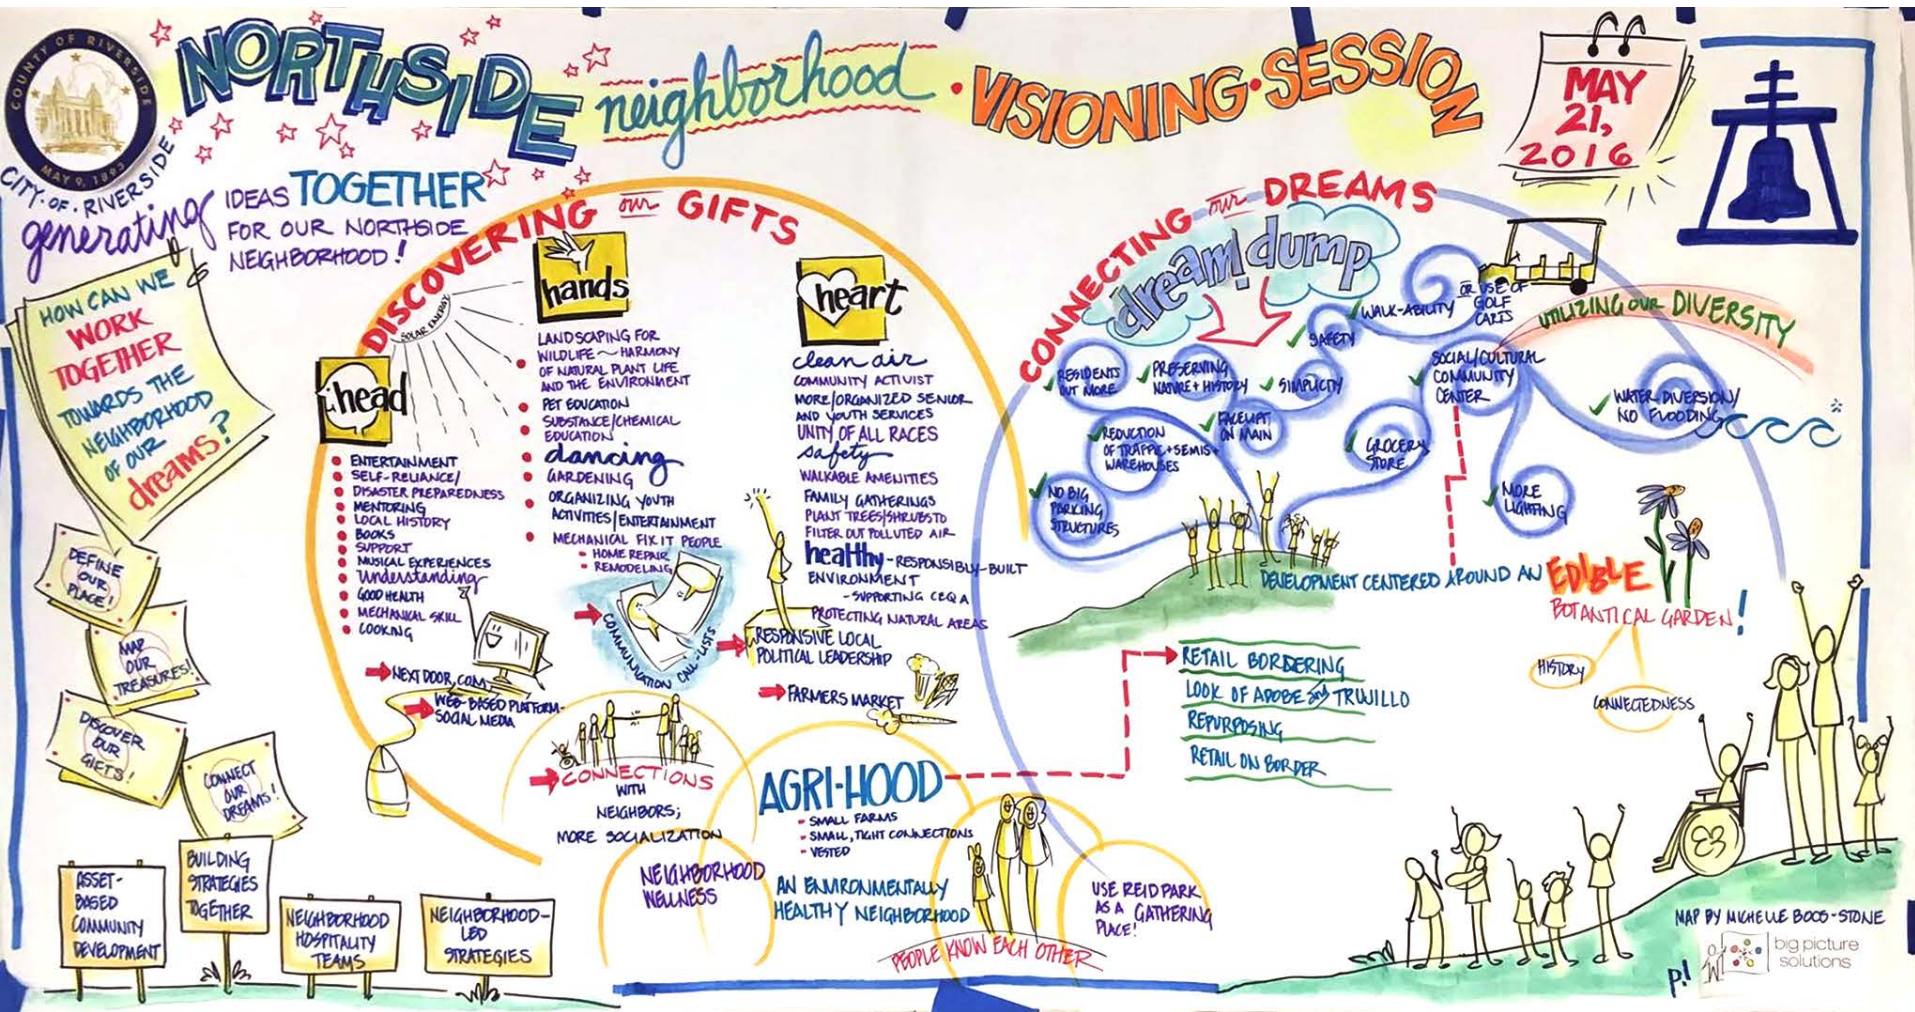 COUNTY OF RIVERSIDE
MAY 9, 1893
CITY·OF·RIVERSIDE
NORTHSIDE neighborhood · VISIONING · SESSION
MAY
21,
2016
generating IDEAS TOGETHER
FOR OUR NORTHSIDE
NEIGHBORHOOD!
HOW CAN WE
WORK
TOGETHER
TOWARDS THE
NEIGHBORHOOD
OF OUR
dreams?
DEFINE
OUR
PLACE!
MAP
OUR
TREASURES!
DISCOVER
OUR
GIFTS!
CONNECT
OUR
DREAMS!
ASSET-
BASED
COMMUNITY
DEVELOPMENT
BUILDING
STRATEGIES
TOGETHER
NEIGHBORHOOD
HOSPITALITY
TEAMS
NEIGHBORHOOD-
LED
STRATEGIES
DISCOVERING our GIFTS
SOLAR ENERGY
head
ENTERTAINMENT
SELF-RELIANCE/
DISASTER PREPAREDNESS
MENTORING
LOCAL HISTORY
BOOKS
SUPPORT
MUSICAL EXPERIENCES
Understanding
GOOD HEALTH
MECHANICAL SKILL
COOKING
NEXTDOOR.COM
WEB-BASED PLATFORM-
SOCIAL MEDIA
hands
LANDSCAPING FOR
WILDLIFE ~ HARMONY
OF NATURAL PLANT LIFE
AND THE ENVIRONMENT
PET EDUCATION
SUBSTANCE/CHEMICAL
EDUCATION
dancing
GARDENING
ORGANIZING YOUTH
ACTIVITIES/ENTERTAINMENT
MECHANICAL FIX IT PEOPLE
- HOME REPAIR
- REMODELING
COMMUNICATION CALL-LISTS
heart
clean air
COMMUNITY ACTIVIST
MORE/ORGANIZED SENIOR
AND YOUTH SERVICES
UNITY OF ALL RACES
safety
WALKABLE AMENITIES
FAMILY GATHERINGS
PLANT TREES/SHRUBS TO
FILTER OUT POLLUTED AIR
healthy - RESPONSIBLY-BUILT
ENVIRONMENT
- SUPPORTING CEQA
PROTECTING NATURAL AREAS
RESPONSIVE LOCAL
POLITICAL LEADERSHIP
FARMERS MARKET
CONNECTIONS
WITH
NEIGHBORS;
MORE SOCIALIZATION
AGRI-HOOD
- SMALL FARMS
- SMALL, TIGHT CONNECTIONS
- VESTED
NEIGHBORHOOD
WELLNESS
AN ENVIRONMENTALLY
HEALTHY NEIGHBORHOOD
PEOPLE KNOW EACH OTHER
USE REID PARK
AS A GATHERING
PLACE!
CONNECTING our DREAMS
dream! dump
RESIDENTS
OUT MORE
PRESERVING
NATURE + HISTORY
SIMPLICITY
SAFETY
WALK-ABILITY
OR USE OF
GOLF
CARTS
UTILIZING OUR DIVERSITY
SOCIAL/CULTURAL
COMMUNITY
CENTER
WATER DIVERSION/
NO FLOODING
REDUCTION
OF TRAFFIC + SEMIS +
WAREHOUSES
ON MAIN
GROCERY
STORE
NO BIG
PARKING
STRUCTURES
MORE
LIGHTING
DEVELOPMENT CENTERED AROUND AN EDIBLE
BOTANTICAL GARDEN!
HISTORY
CONNECTEDNESS
RETAIL BORDERING
LOOK OF ADOBE and TRUJILLO
REPURPOSING
RETAIL ON BORDER
MAP BY MICHELLE BOOS-STONE
p!
big picture
solutions